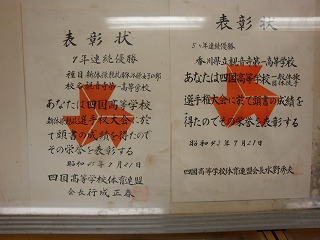 表彰状
7年連続優勝
種目 新体操競技
校名 観音寺第一高等学校
あなたは四国高等学校
選手権大会に於
て頭書の成績を得たので
その栄誉を表彰する
昭和45年7月21日
四国高等学校体育連盟
会長 行成正春
表彰状
5ヶ年連続優勝
香川県立観音寺第一高等学校
あなたは四国高等学校
選手権大会に於て頭書の成績を
得たのでその栄誉を表彰する
昭和43年7月21日
四国高等学校体育連盟会長水野秀夫